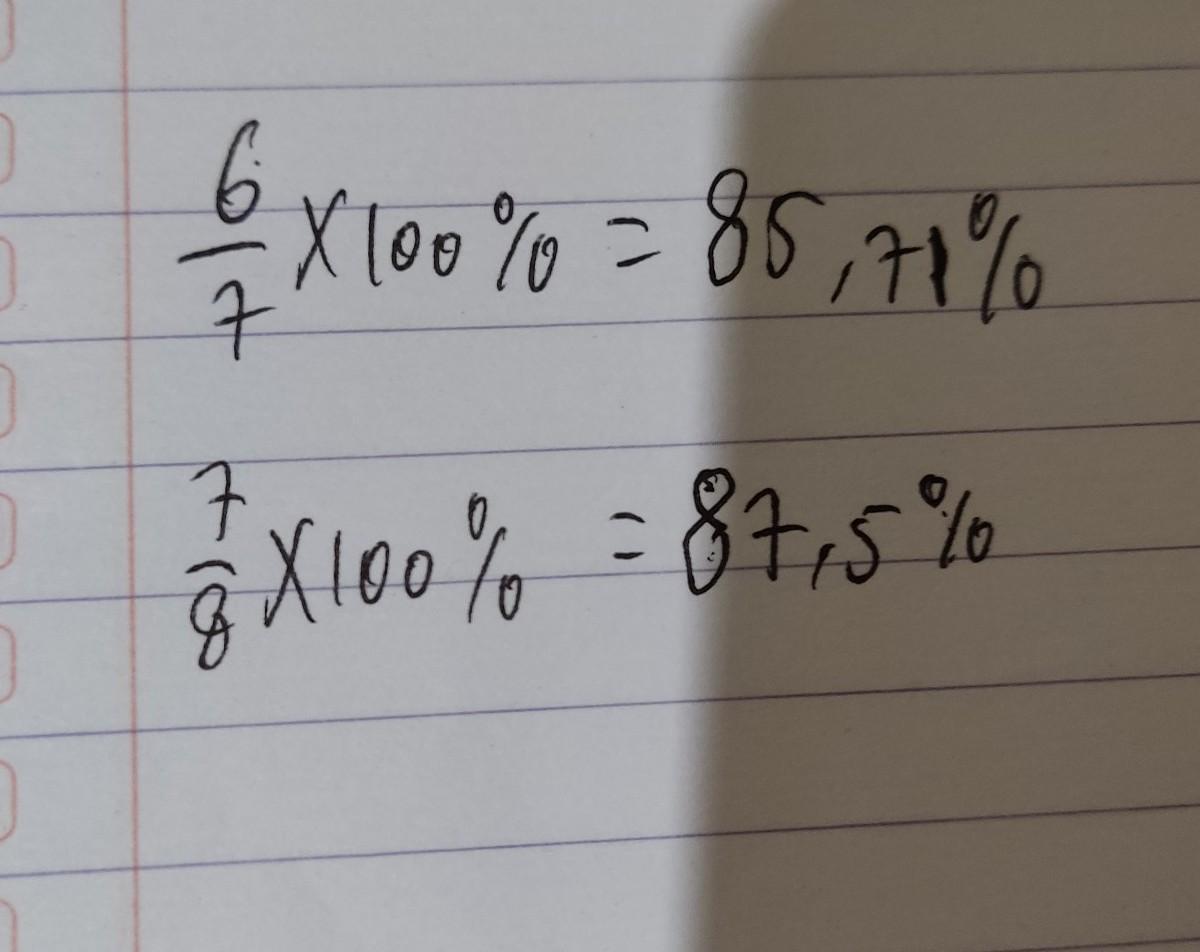 6/7 X 100% = 85,71%
7/8 X 100% = 87,5%